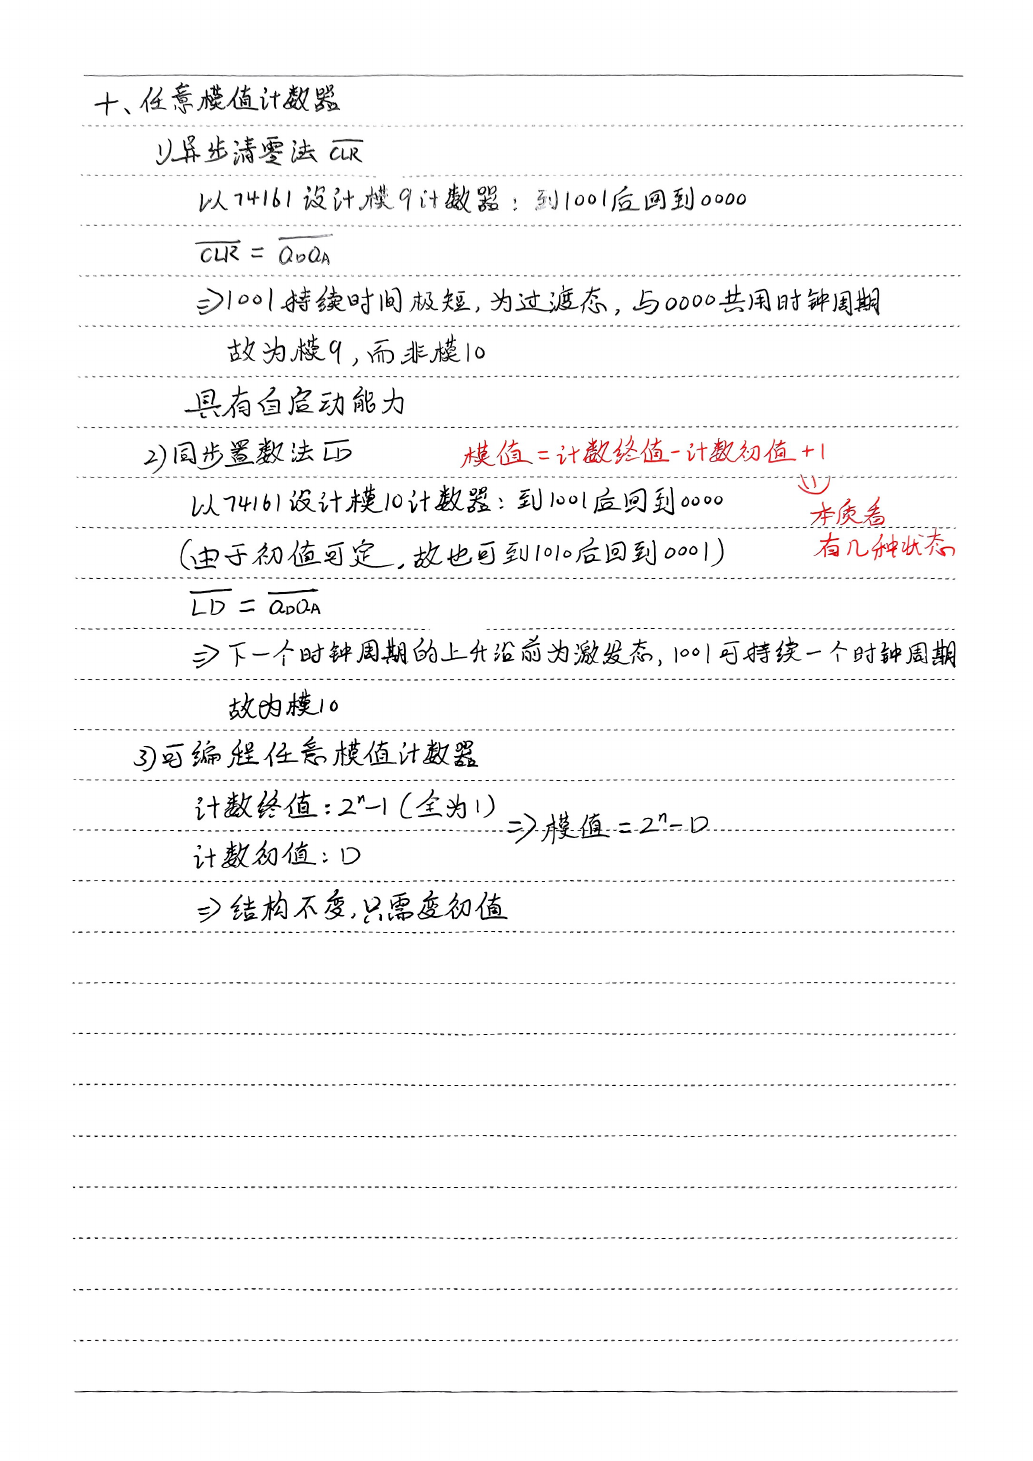 十、任意模值计数器
1)异步清零法 \overline{CLR}
以74161设计模9计数器：到1001后回到0000
\overline{CLR} = \overline{Q_DQ_A}
⇒1001持续时间极短，为过渡态，与0000共用时钟周期
故为模9，而非模10
具有自启动能力
2)同步置数法 \overline{LD}
模值=计数终值-计数初值+1
以74161设计模10计数器：到1001后回到0000
本质看
有几种状态
(由于初值可定，故也可到1010后回到0001)
\overline{LD} = \overline{Q_DQ_A}
⇒下一个时钟周期的上升沿前为激发态，1001可持续一个时钟周期
故为模10
3)可编程任意模值计数器
计数终值：2ⁿ-1(全为1)
⇒模值=2ⁿ-D
计数初值：D
⇒结构不变，只需变初值